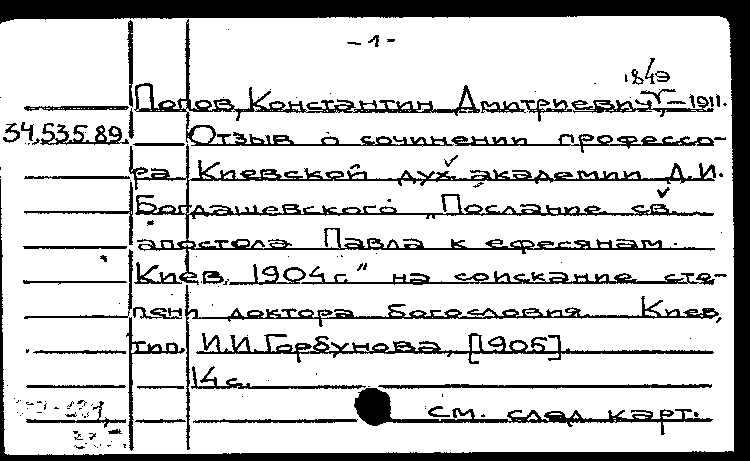 - 1 -
1849
Попов, Константин Дмитриевич, - 1911.
34.535.89. Отзыв о сочинении профессо-
ра Киевской дух. академии Д.И.
Богдашевского „Послание св.
апостола Павла к ефесянам.
Киев, 1904 г." на соискание сте-
пени доктора богословия. Киев,
тип. И.И. Горбунова, [1905].
14 с.
см. след. карт.